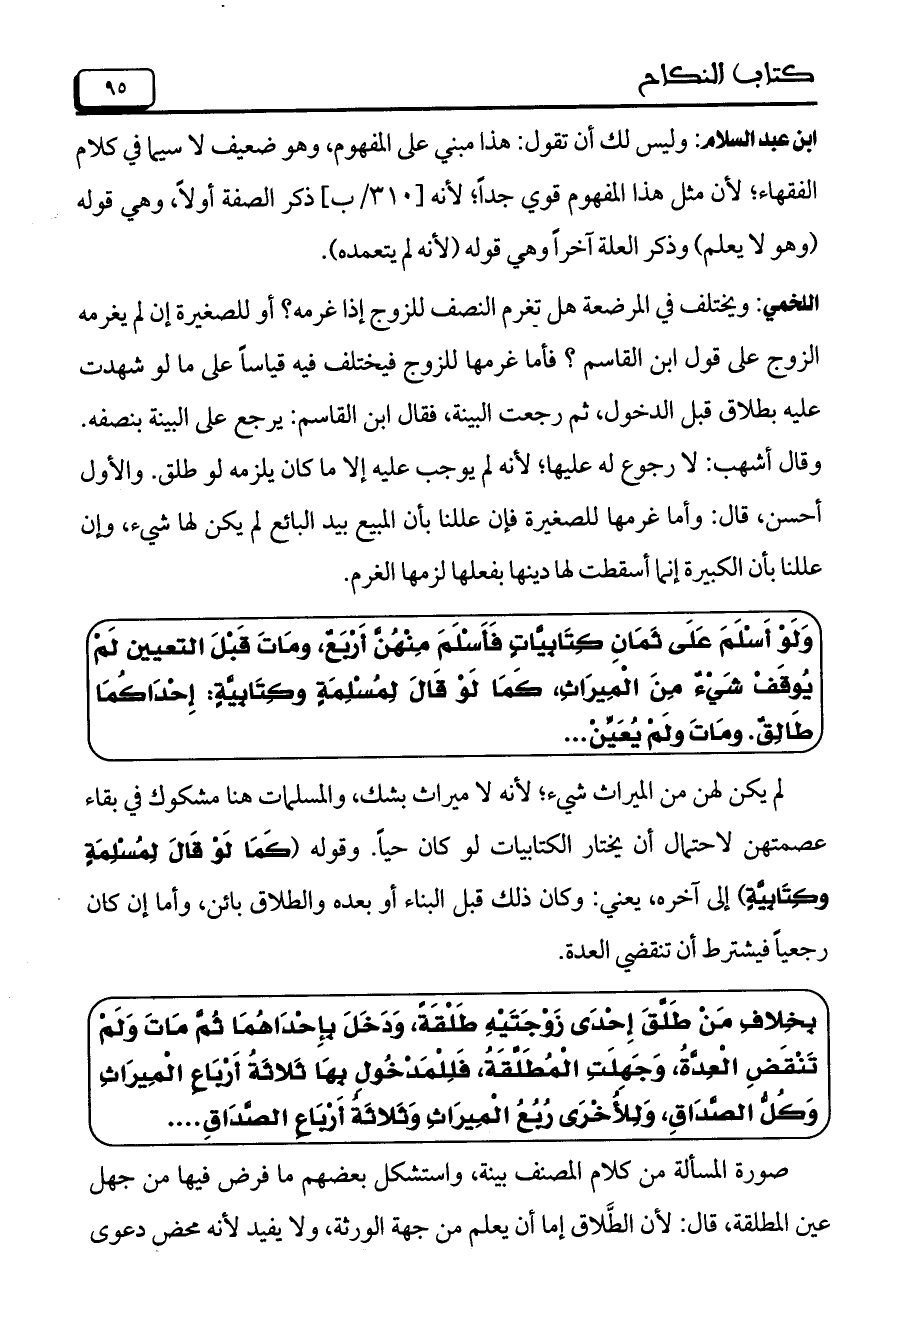 كتاب النكاح
٩٥
ابن عبد السلام: وليس لك أن تقول: هذا مبني على المفهوم، وهو ضعيف لا سيما في كلام
الفقهاء؛ لأن مثل هذا المفهوم قوي جداً؛ لأنه [٣١٠/ ب] ذكر الصفة أولاً، وهي قوله
(وهو لا يعلم) وذكر العلة آخراً وهي قوله (لأنه لم يتعمده).
اللخمي: ويختلف في المرضعة هل تغرم النصف للزوج إذا غرمه؟ أو للصغيرة إن لم يغرمه
الزوج على قول ابن القاسم ؟ فأما غرمها للزوج فيختلف فيه قياساً على ما لو شهدت
عليه بطلاق قبل الدخول، ثم رجعت البينة، فقال ابن القاسم: يرجع على البينة بنصفه.
وقال أشهب: لا رجوع له عليها؛ لأنه لم يوجب عليه إلا ما كان يلزمه لو طلق. والأول
أحسن، قال: وأما غرمها للصغيرة فإن عللنا بأن المبيع بيد البائع لم يكن لها شيء، وإن
عللنا بأن الكبيرة إنما أسقطت لها دينها بفعلها لزمها الغرم.
وَلَوْ أَسْلَمَ عَلَى ثَمَانِ كِتَابِيَّاتٍ فَأَسْلَمَ مِنْهُنَّ أَرْبَعٌ، ومَاتَ قَبْلَ التعيين لَمْ
يُوقَفْ شَيْءٌ مِنَ الْمِيرَاثِ، كَمَا لَوْ قَالَ لِمُسْلِمَةٍ وكِتَابِيَّةٍ: إِحْدَاكُمَا
طَالِقٌ. ومَاتَ ولَمْ يُعَيِّنْ...
لم يكن لهن من الميراث شيء؛ لأنه لا ميراث بشك، والمسلمات هنا مشكوك في بقاء
عصمتهن لاحتمال أن يختار الكتابيات لو كان حياً. وقوله (كَمَا لَوْ قَالَ لِمُسْلِمَةٍ
وكِتَابِيَّةٍ) إلى آخره، يعني: وكان ذلك قبل البناء أو بعده والطلاق بائن، وأما إن كان
رجعياً فيشترط أن تنقضي العدة.
بِخِلافِ مَنْ طَلَّقَ إِحْدَى زَوْجَتَيْهِ طَلْقَةً، وَدَخَلَ بِإِحْدَاهُمَا ثُمَّ مَاتَ وَلَمْ
تَنْقَضِ الْعِدَّةُ، وَجَهِلَتِ الْمُطَلَّقَةُ، فَلِلْمَدْخُولِ بِهَا ثَلاثَةُ أَرْبَاعِ الْمِيرَاثِ
وَكُلُّ الصَّدَاقِ، وَلِلأُخْرَى رُبُعُ الْمِيرَاثِ وَثَلاثَةُ أَرْبَاعِ الصَّدَاقِ....
صورة المسألة من كلام المصنف بينة، واستشكل بعضهم ما فرض فيها من جهل
عين المطلقة، قال: لأن الطَّلاق إما أن يعلم من جهة الورثة، ولا يفيد لأنه محض دعوى